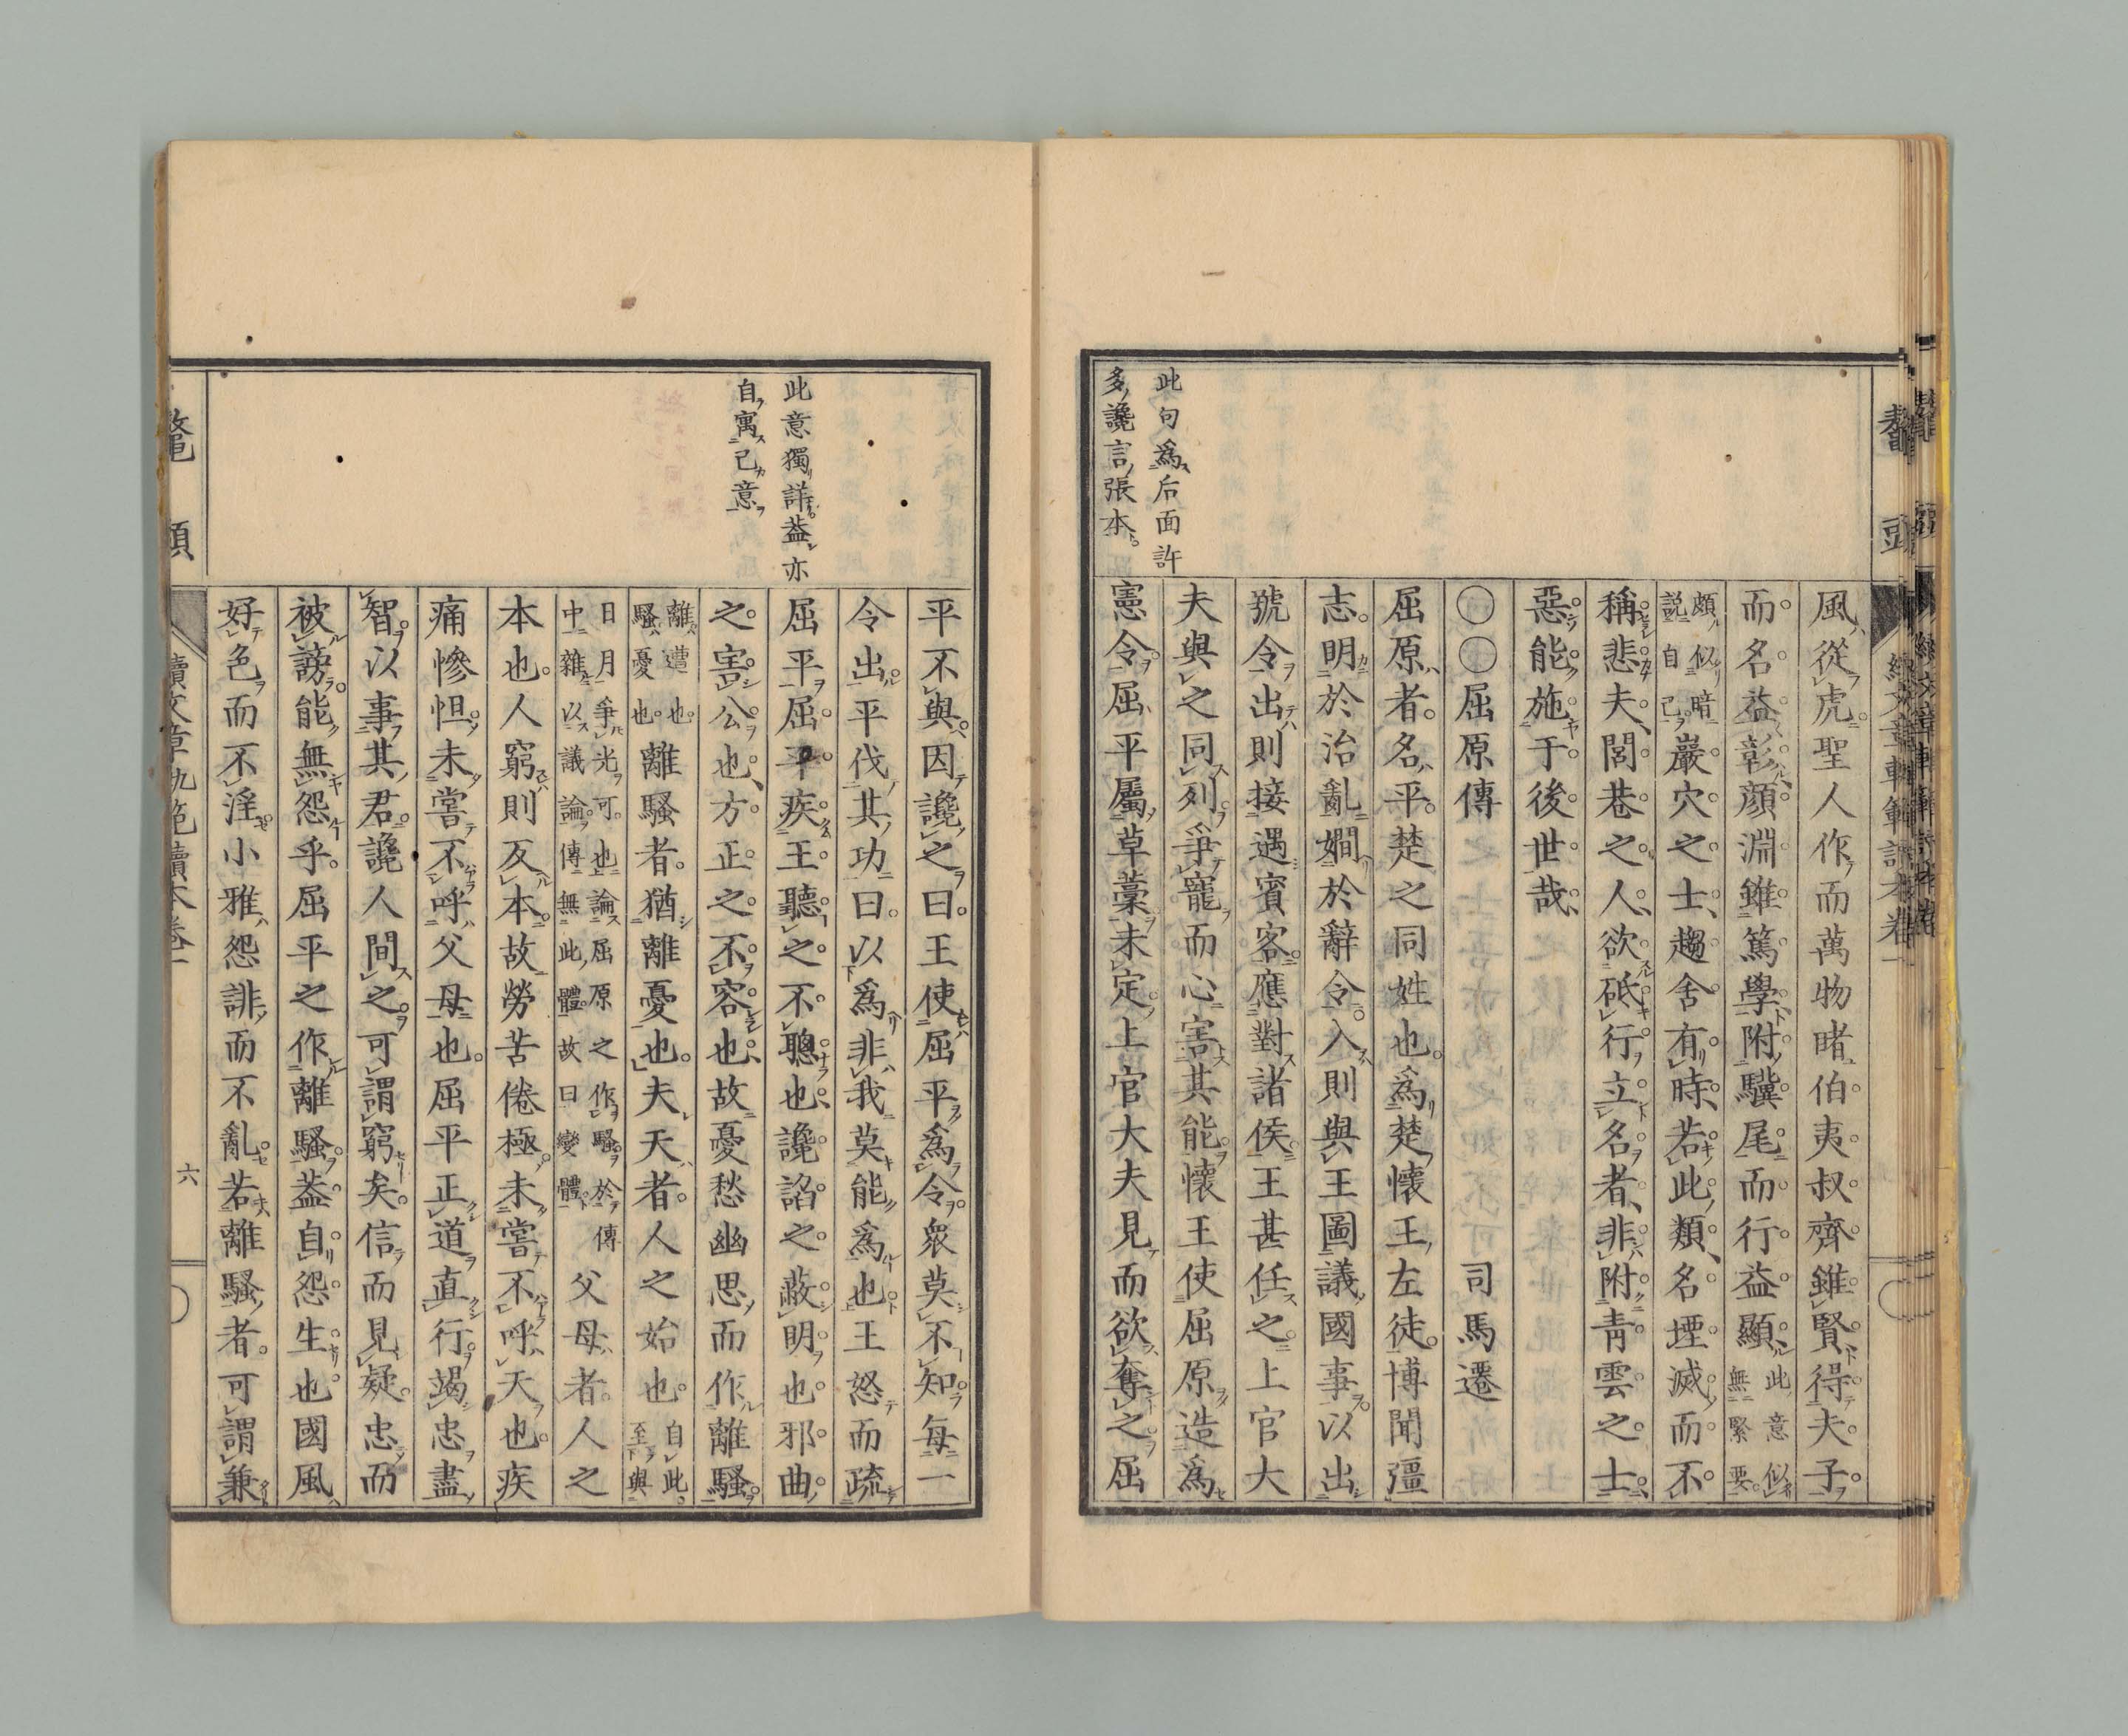 鼇頭
續文章軌範讀本卷一
此句爲后面許
多讒言張本
風從虎聖人作而萬物睹伯夷叔齊雖賢得夫子
而名益彰顔淵雖篤學附驥尾而行益顯此意似無緊要
頗似暗説自己巖穴之士趨舍有時若此類名堙滅而不
稱悲夫閭巷之人欲砥行立名者非附青雲之士
惡能施于後世哉
〇〇屈原傳 司馬遷
屈原者名平楚之同姓也爲楚懷王左徒博聞彊
志明於治亂嫺於辭令入則與王圖議國事以出
號令出則接遇賓客應對諸侯王甚任之上官大
夫與之同列爭寵而心害其能懷王使屈原造爲
憲令屈平屬草藁未定上官大夫見而欲奪之屈
此意獨詳葢亦
自寓己意
平不與因讒之曰王使屈平爲令衆莫不知每一
令出平伐其功曰以爲非我莫能爲也王怒而疏
屈平屈平疾王聽之不聰也讒諂之蔽明也邪曲
之害公也方正之不容也故憂愁幽思而作離騷
離遭也騷憂也離騷者猶離憂也夫天者人之始也自此至與
日月爭光可也論屈原之作騷於傳中雜以議論傳無此體故曰變體父母者人之
本也人窮則反本故勞苦倦極未嘗不呼天也疾
痛慘怛未嘗不呼父母也屈平正道直行竭忠盡
智以事其君讒人間之可謂窮矣信而見疑忠而
被謗能無怨乎屈平之作離騷葢自怨生也國風
好色而不淫小雅怨誹而不亂若離騷者可謂兼
鼇頭
續文章軌範讀本卷一
六